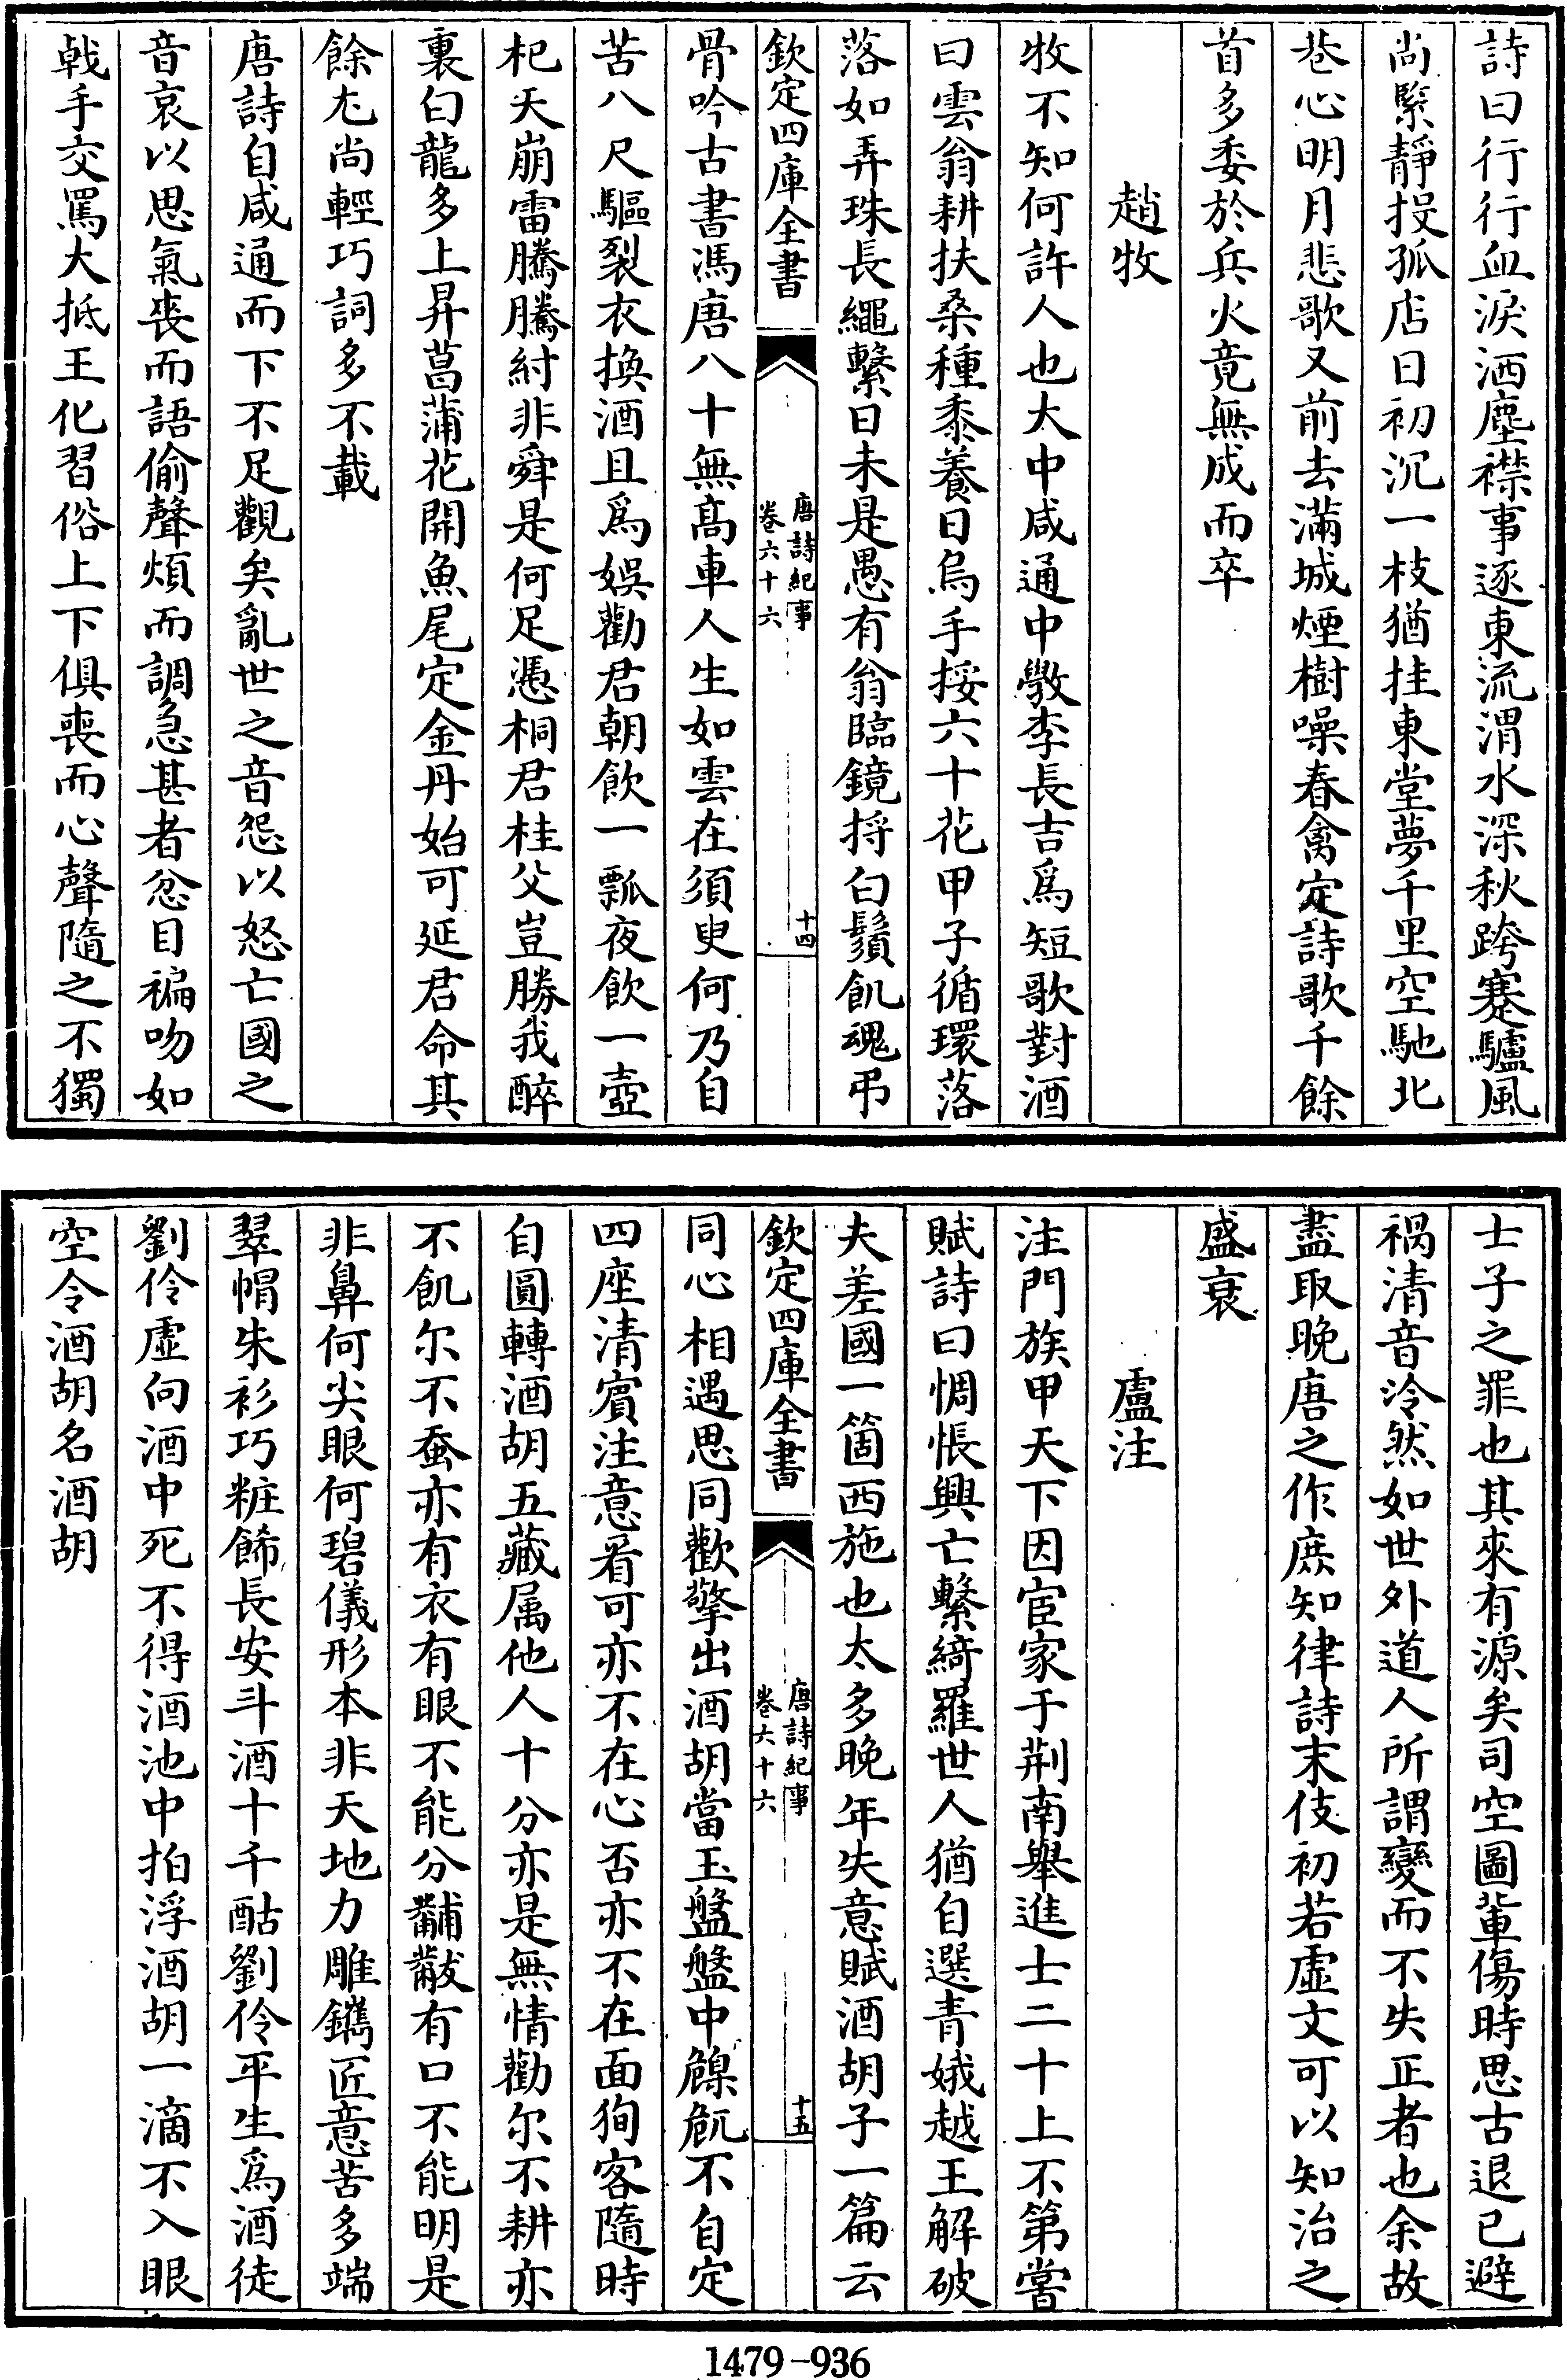 詩曰行行血淚洒塵襟事逐東流渭水深秋跨蹇驢風
尚緊靜投孤店日初沉一枝猶挂東堂夢千里空馳北
巷心明月悲歌又前去滿城煙樹噪春禽定詩歌千餘
首多委於兵火竟無成而卒
趙牧
牧不知何許人也大中咸通中斆李長吉爲短歌對酒
曰雲翁耕扶桑種黍養日烏手挼六十花甲子循環落
落如弄珠長繩繫日未是愚有翁臨鏡捋白鬚飢魂弔
欽定四庫全書
唐詩紀事
卷六十六
十四
骨吟古書馮唐八十無高車人生如雲在須臾何乃自
苦八尺驅裂衣換酒且爲娛勸君朝飲一瓢夜飲一壺
杞天崩雷騰騰紂非舜是何足憑桐君桂父豈勝我醉
裏白龍多上昇菖蒲花開魚尾定金丹始可延君命其
餘尤尚輕巧詞多不載
唐詩自咸通而下不足觀矣亂世之音怨以怒亡國之
音哀以思氣喪而語偷聲煩而調急甚者忿目褊吻如
戟手交罵大抵王化習俗上下俱喪而心聲隨之不獨
士子之罪也其來有源矣司空圖軰傷時思古退已避
禍清音泠然如世外道人所謂變而不失正者也余故
盡取晚唐之作庶知律詩末伎初若虛文可以知治之
盛衰
盧注
注門族甲天下因宦家于荆南舉進士二十上不第嘗
賦詩曰惆悵興亡繫綺羅世人猶自選青娥越王解破
夫差國一箇西施也太多晚年失意賦酒胡子一篇云
欽定四庫全書
唐詩紀事
卷六十六
十五
同心相遇思同歡擎出酒胡當玉盤盤中臲卼不自定
四座清賓注意看可亦不在心否亦不在面狥客隨時
自圓轉酒胡五藏属他人十分亦是無情勸尔不耕亦
不飢尔不蚕亦有衣有眼不能分黼黻有口不能明是
非鼻何尖眼何碧儀形本非天地力雕鐫匠意苦多端
翠帽朱衫巧粧餙長安斗酒十千酤劉伶平生爲酒徒
劉伶虛向酒中死不得酒池中拍浮酒胡一滴不入眼
空令酒胡名酒胡
1479-936